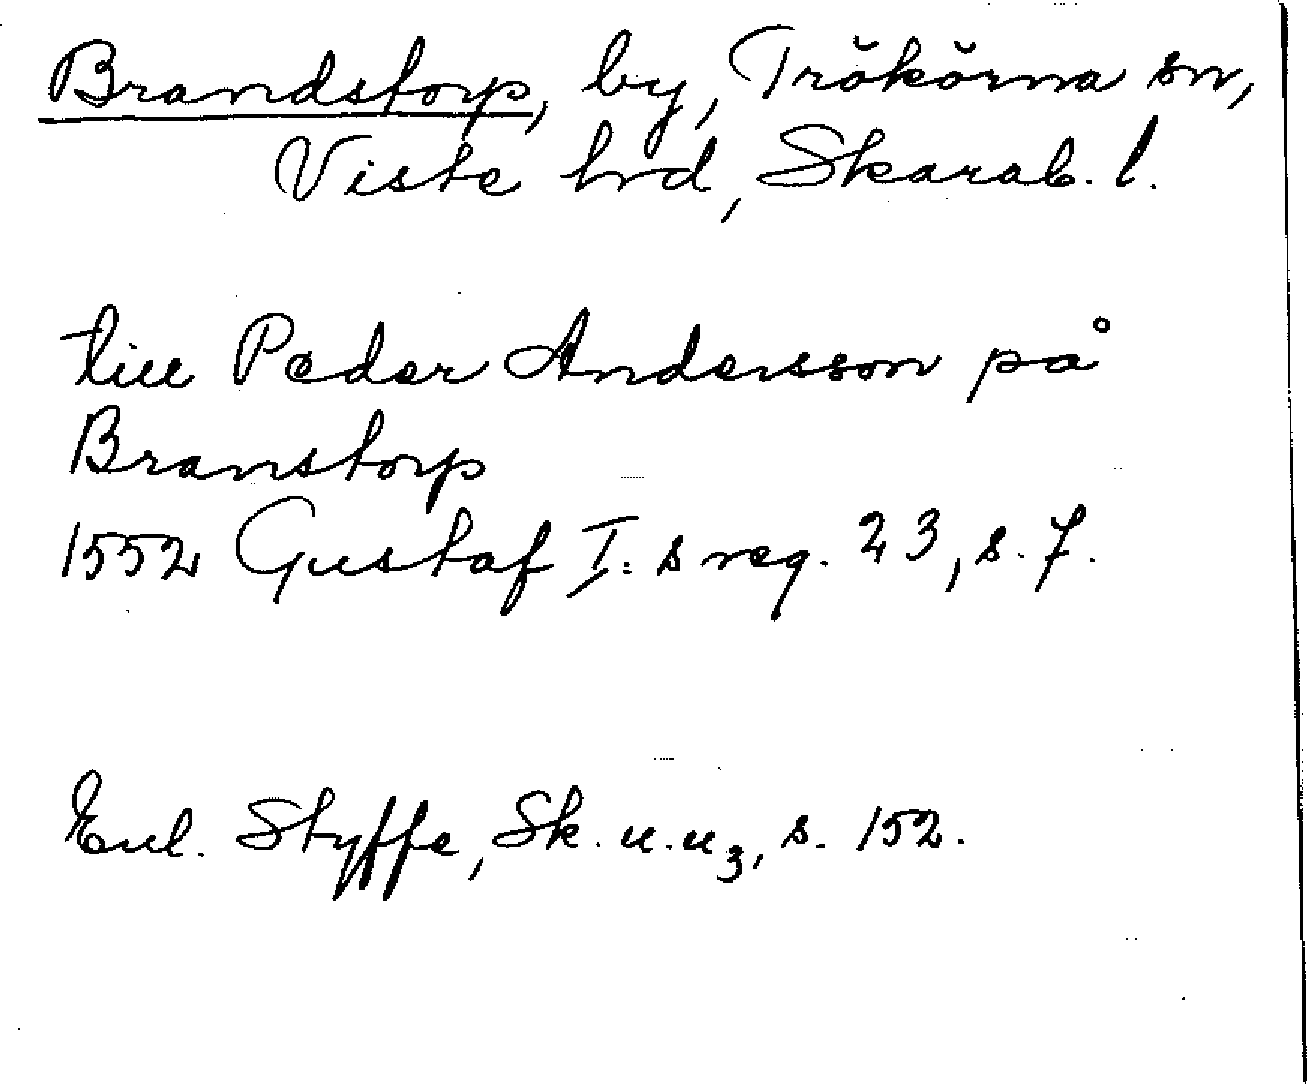 Brandstorp, by, Trökörna sn,
Viste hrd, Skarab. l.
till Peder Andersson på
Branstorp
1552 Gustaf I:s reg. 23, s. 7.
Enl. Styffe, Sk. u. u3, s. 152.